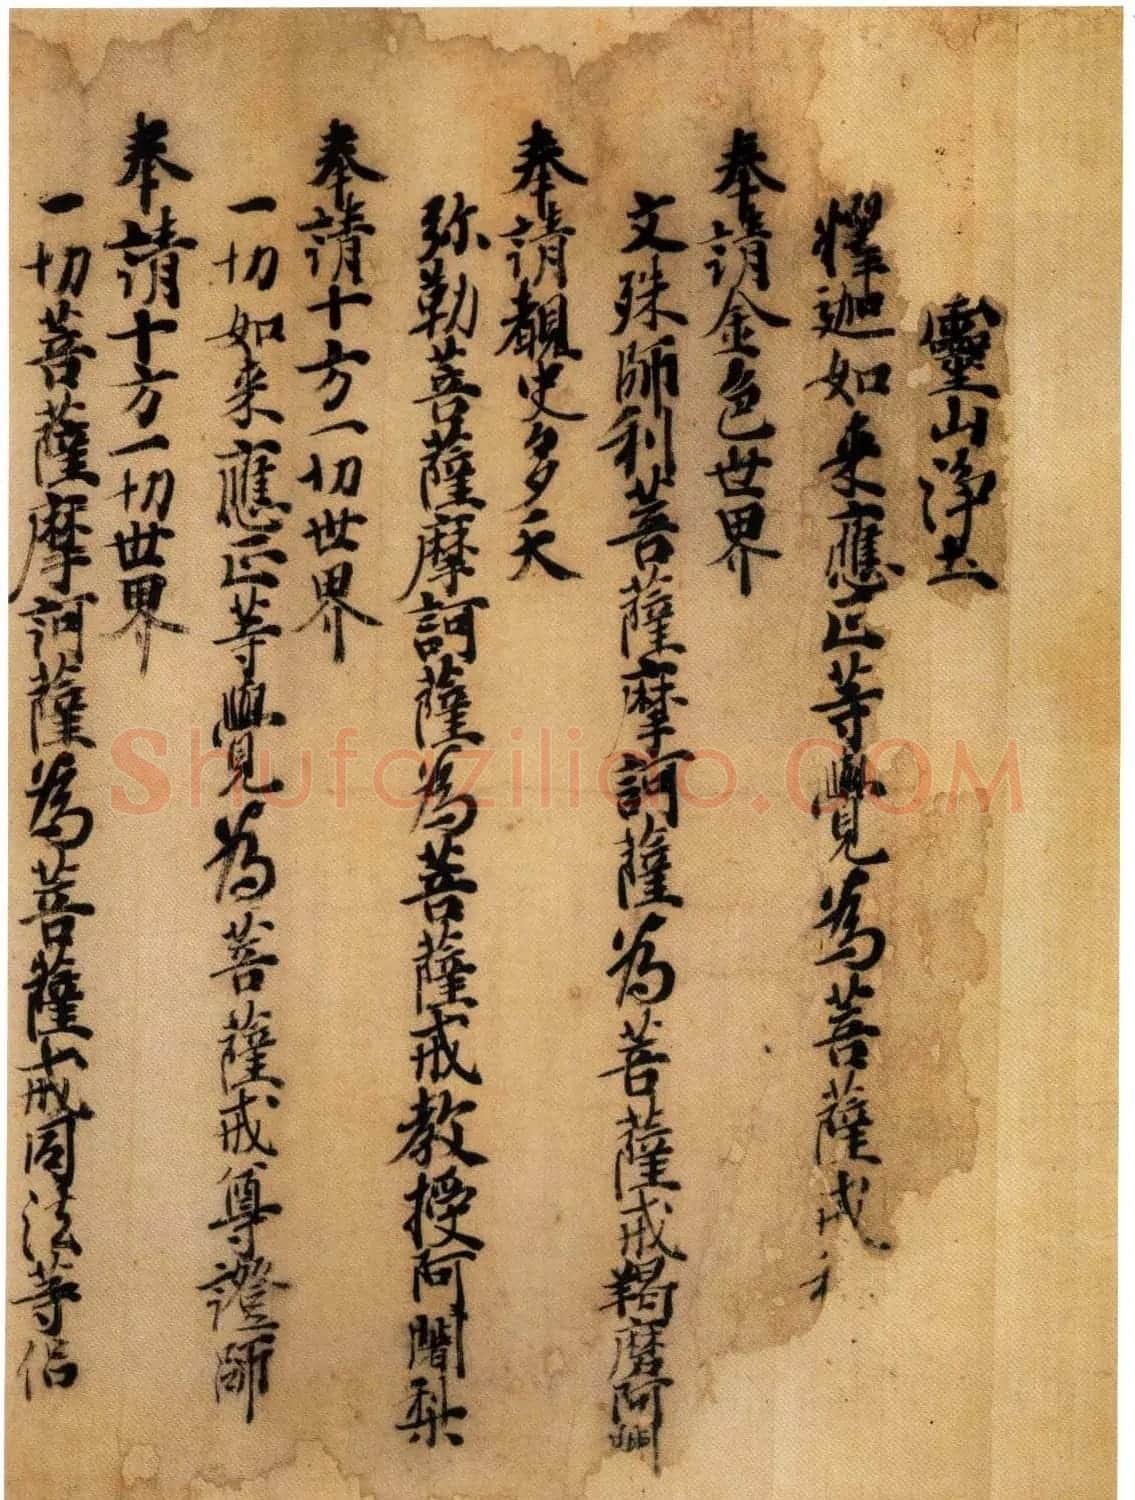 靈山淨土
釋迦如来應正等覺為菩薩戒
奉請金色世界
文殊師利菩薩摩訶薩為菩薩戒羯磨阿
奉請覩史多天
弥勒菩薩摩訶薩為菩薩戒教授阿闍梨
奉請十方一切世界
一切如来應正等覺為菩薩戒尊證師
奉請十方一切世界
一切菩薩摩訶薩為菩薩戒同法等侣
Shufaziliao.COM